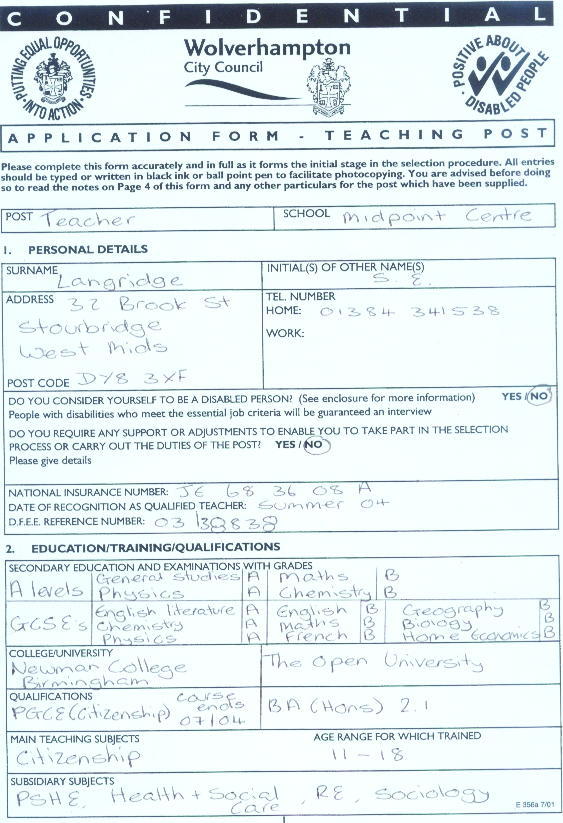 CONFIDENTIAL
PUTTING EQUAL OPPORTUNITIES INTO ACTION
Wolverhampton
City Council
POSITIVE ABOUT DISABLED PEOPLE
APPLICATION FORM - TEACHING POST
Please complete this form accurately and in full as it forms the initial stage in the selection procedure. All entries
should be typed or written in black ink or ball point pen to facilitate photocopying. You are advised before doing
so to read the notes on Page 4 of this form and any other particulars for the post which have been supplied.
POST Teacher SCHOOL Midpoint Centre
1. PERSONAL DETAILS
SURNAME INITIAL(S) OF OTHER NAME(S)
Langridge S. E.
ADDRESS 32 Brook St TEL. NUMBER
HOME: 01384 341538
Stourbridge
WORK:
West Mids
POST CODE DY8 3XF
DO YOU CONSIDER YOURSELF TO BE A DISABLED PERSON? (See enclosure for more information) YES / NO
People with disabilities who meet the essential job criteria will be guaranteed an interview
DO YOU REQUIRE ANY SUPPORT OR ADJUSTMENTS TO ENABLE YOU TO TAKE PART IN THE SELECTION
PROCESS OR CARRY OUT THE DUTIES OF THE POST? YES / NO
Please give details
NATIONAL INSURANCE NUMBER: JE 68 36 08 A
DATE OF RECOGNITION AS QUALIFIED TEACHER: Summer 04
D.F.E.E. REFERENCE NUMBER: 03
2. EDUCATION/TRAINING/QUALIFICATIONS
SECONDARY EDUCATION AND EXAMINATIONS WITH GRADES
A levels General studies A Maths B
Physics A Chemistry B
GCSE's English literature A English B Geography B
Chemistry A Maths B Biology B
Physics A French B Home Economics B
COLLEGE/UNIVERSITY
Newman College The Open University
Birmingham
QUALIFICATIONS course
PGCE (Citizenship) ends BA (Hons) 2.1
07/04
MAIN TEACHING SUBJECTS AGE RANGE FOR WHICH TRAINED
Citizenship 11-18
SUBSIDIARY SUBJECTS
PSHE, Health + Social Care, RE, Sociology
E 356a 7/01